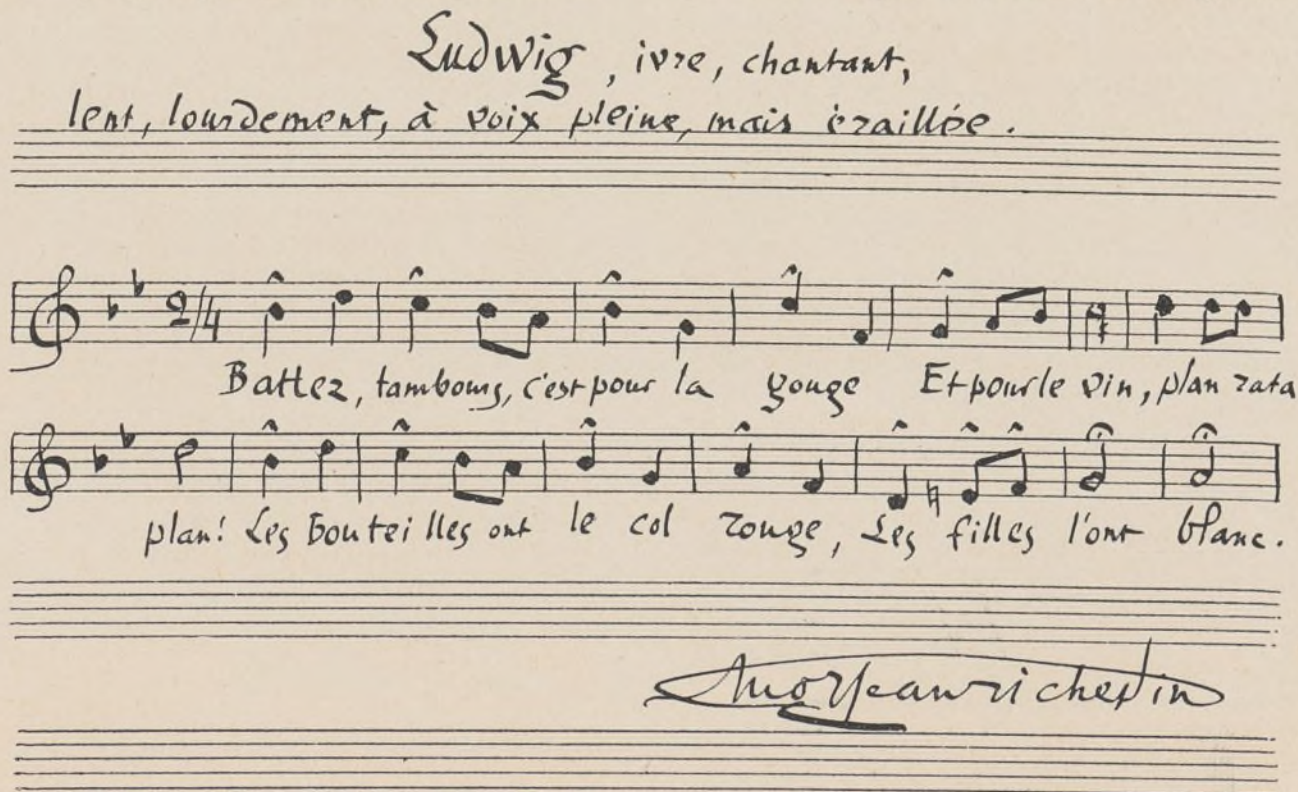 Ludwig, ivre, chantant,
lent, lourdement, à voix pleine, mais éraillée.
2/4
Battez, tambours, c'est pour la gouge Et pour le vin, plan rata
plan! Les bouteilles ont le col rouge, Les filles l'ont blanc.
Jean richepin